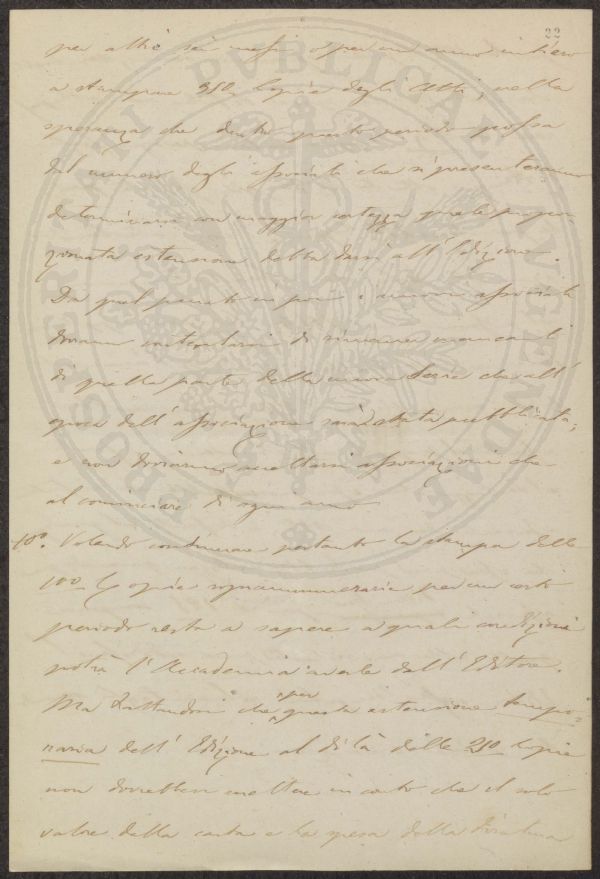 22
per altri sei mesi o per un anno intiero
a stampare 350 Copie degli Atti, nella
speranza che dentro questo periodo possa
dal numero degli associati che si presenteranno
determinarsi con maggior certezza quale propor
zionata estensione debba darsi all'Edizione.
Da quel punto in poi i nuovi associati
dovranno contentarsi di rimanere mancanti
di quella parte della nuova Serie che all'
epoca dell'associazione sarà stata pubblicata;
e non dovranno accettarsi associazioni che
al cominciare di ogni anno
10º. Volendo continuare pertanto la stampa delle
100 Copie sopranumerarie per un certo
periodo resta a sapere a quali condizioni
potrà l'Accademia averle dall'Editore.
Ma trattandosi che per questa estensione tempo-
raria dell'Edizione al di là delle 250 Copie
non dovrebbesi mettere in conto che il solo
valore della carta e la spesa della tiratura
PROSPERITATI PVBLICAE AVGENDAE